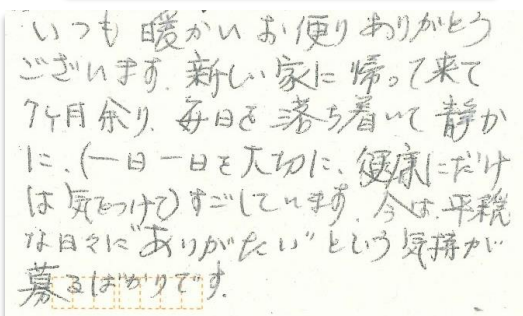 いつも 暖かい お便り ありがとう
ございます. 新しい 家に 帰って来て
7ケ月余り. 毎日を 落ち着いて 静か
に、(一日一日を大切に、健康にだけ
は 気をつけて)すごしています. 今は、平穏
な日々に"ありがたい"という気持が
募るばかりです.